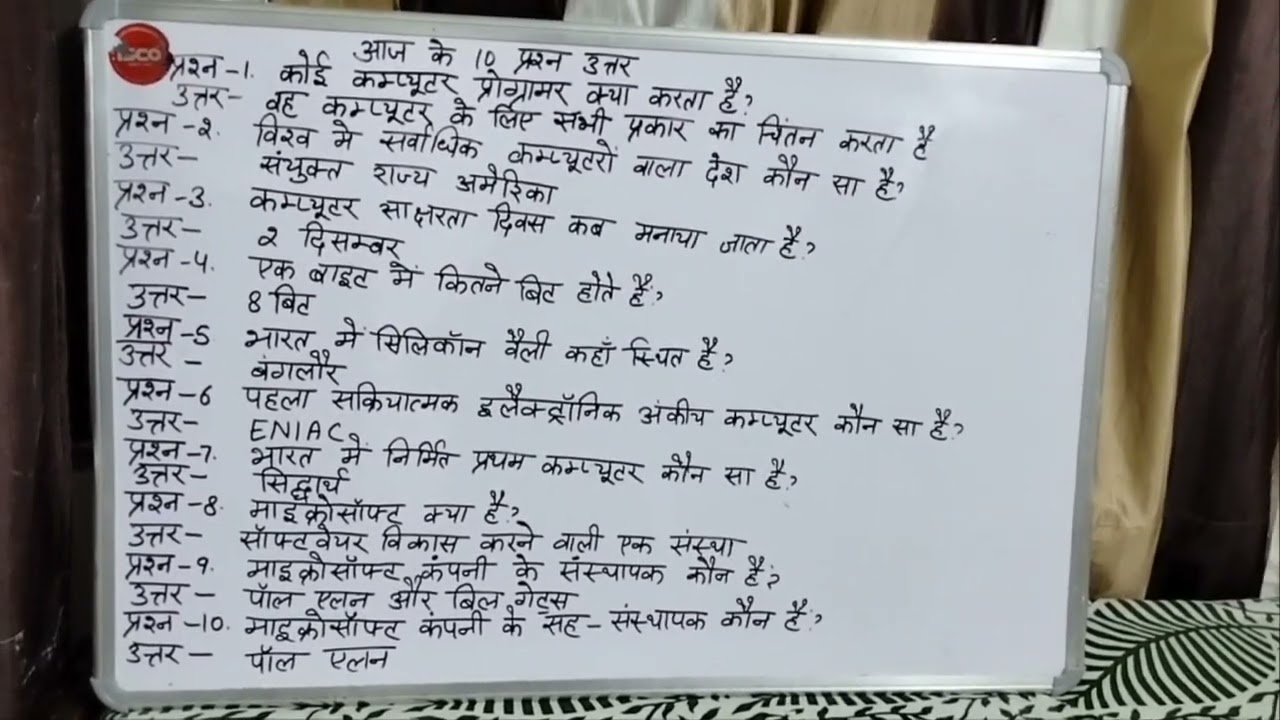 आज के 10 प्रश्न उत्तर
प्रश्न-1. कोई कम्प्यूटर प्रोग्रामर क्या करता है?
उत्तर- वह कम्प्यूटर के लिए सभी प्रकार का चिंतन करता है
प्रश्न-२. विश्व मे सर्वाधिक कम्प्यूटरों वाला देश कौन सा है?
उत्तर- संयुक्त राज्य अमेरिका
प्रश्न-3. कम्प्यूटर साक्षरता दिवस कब मनाया जाता है?
उत्तर- २ दिसम्बर
प्रश्न-4. एक बाइट में कितने बिट होते हैं?
उत्तर- 8 बिट
प्रश्न-5 भारत में सिलिकॉन वैली कहाँ स्थित है?
उत्तर- बंगलौर
प्रश्न-6 पहला सक्रियात्मक इलैक्ट्रॉनिक अंकीय कम्प्यूटर कौन सा है?
उत्तर- ENIAC
प्रश्न-7. भारत में निर्मित प्रथम कम्प्यूटर कौन सा है?
उत्तर- सिद्धार्थ
प्रश्न-8. माइक्रोसॉफ्ट क्या है?
उत्तर- सॉफ्टवेयर विकास करने वाली एक संस्था
प्रश्न-9. माइक्रोसॉफ्ट कंपनी के संस्थापक कौन हैं?
उत्तर- पॉल एलन और बिल गेट्स
प्रश्न-10. माइक्रोसॉफ्ट कंपनी के सह-संस्थापक कौन है?
उत्तर- पॉल एलन